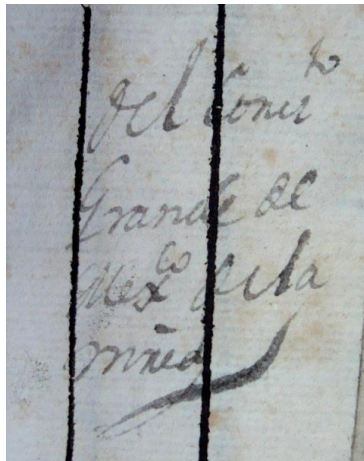 del Conu^to
Grande de
Mex^co de la
mr̃ed